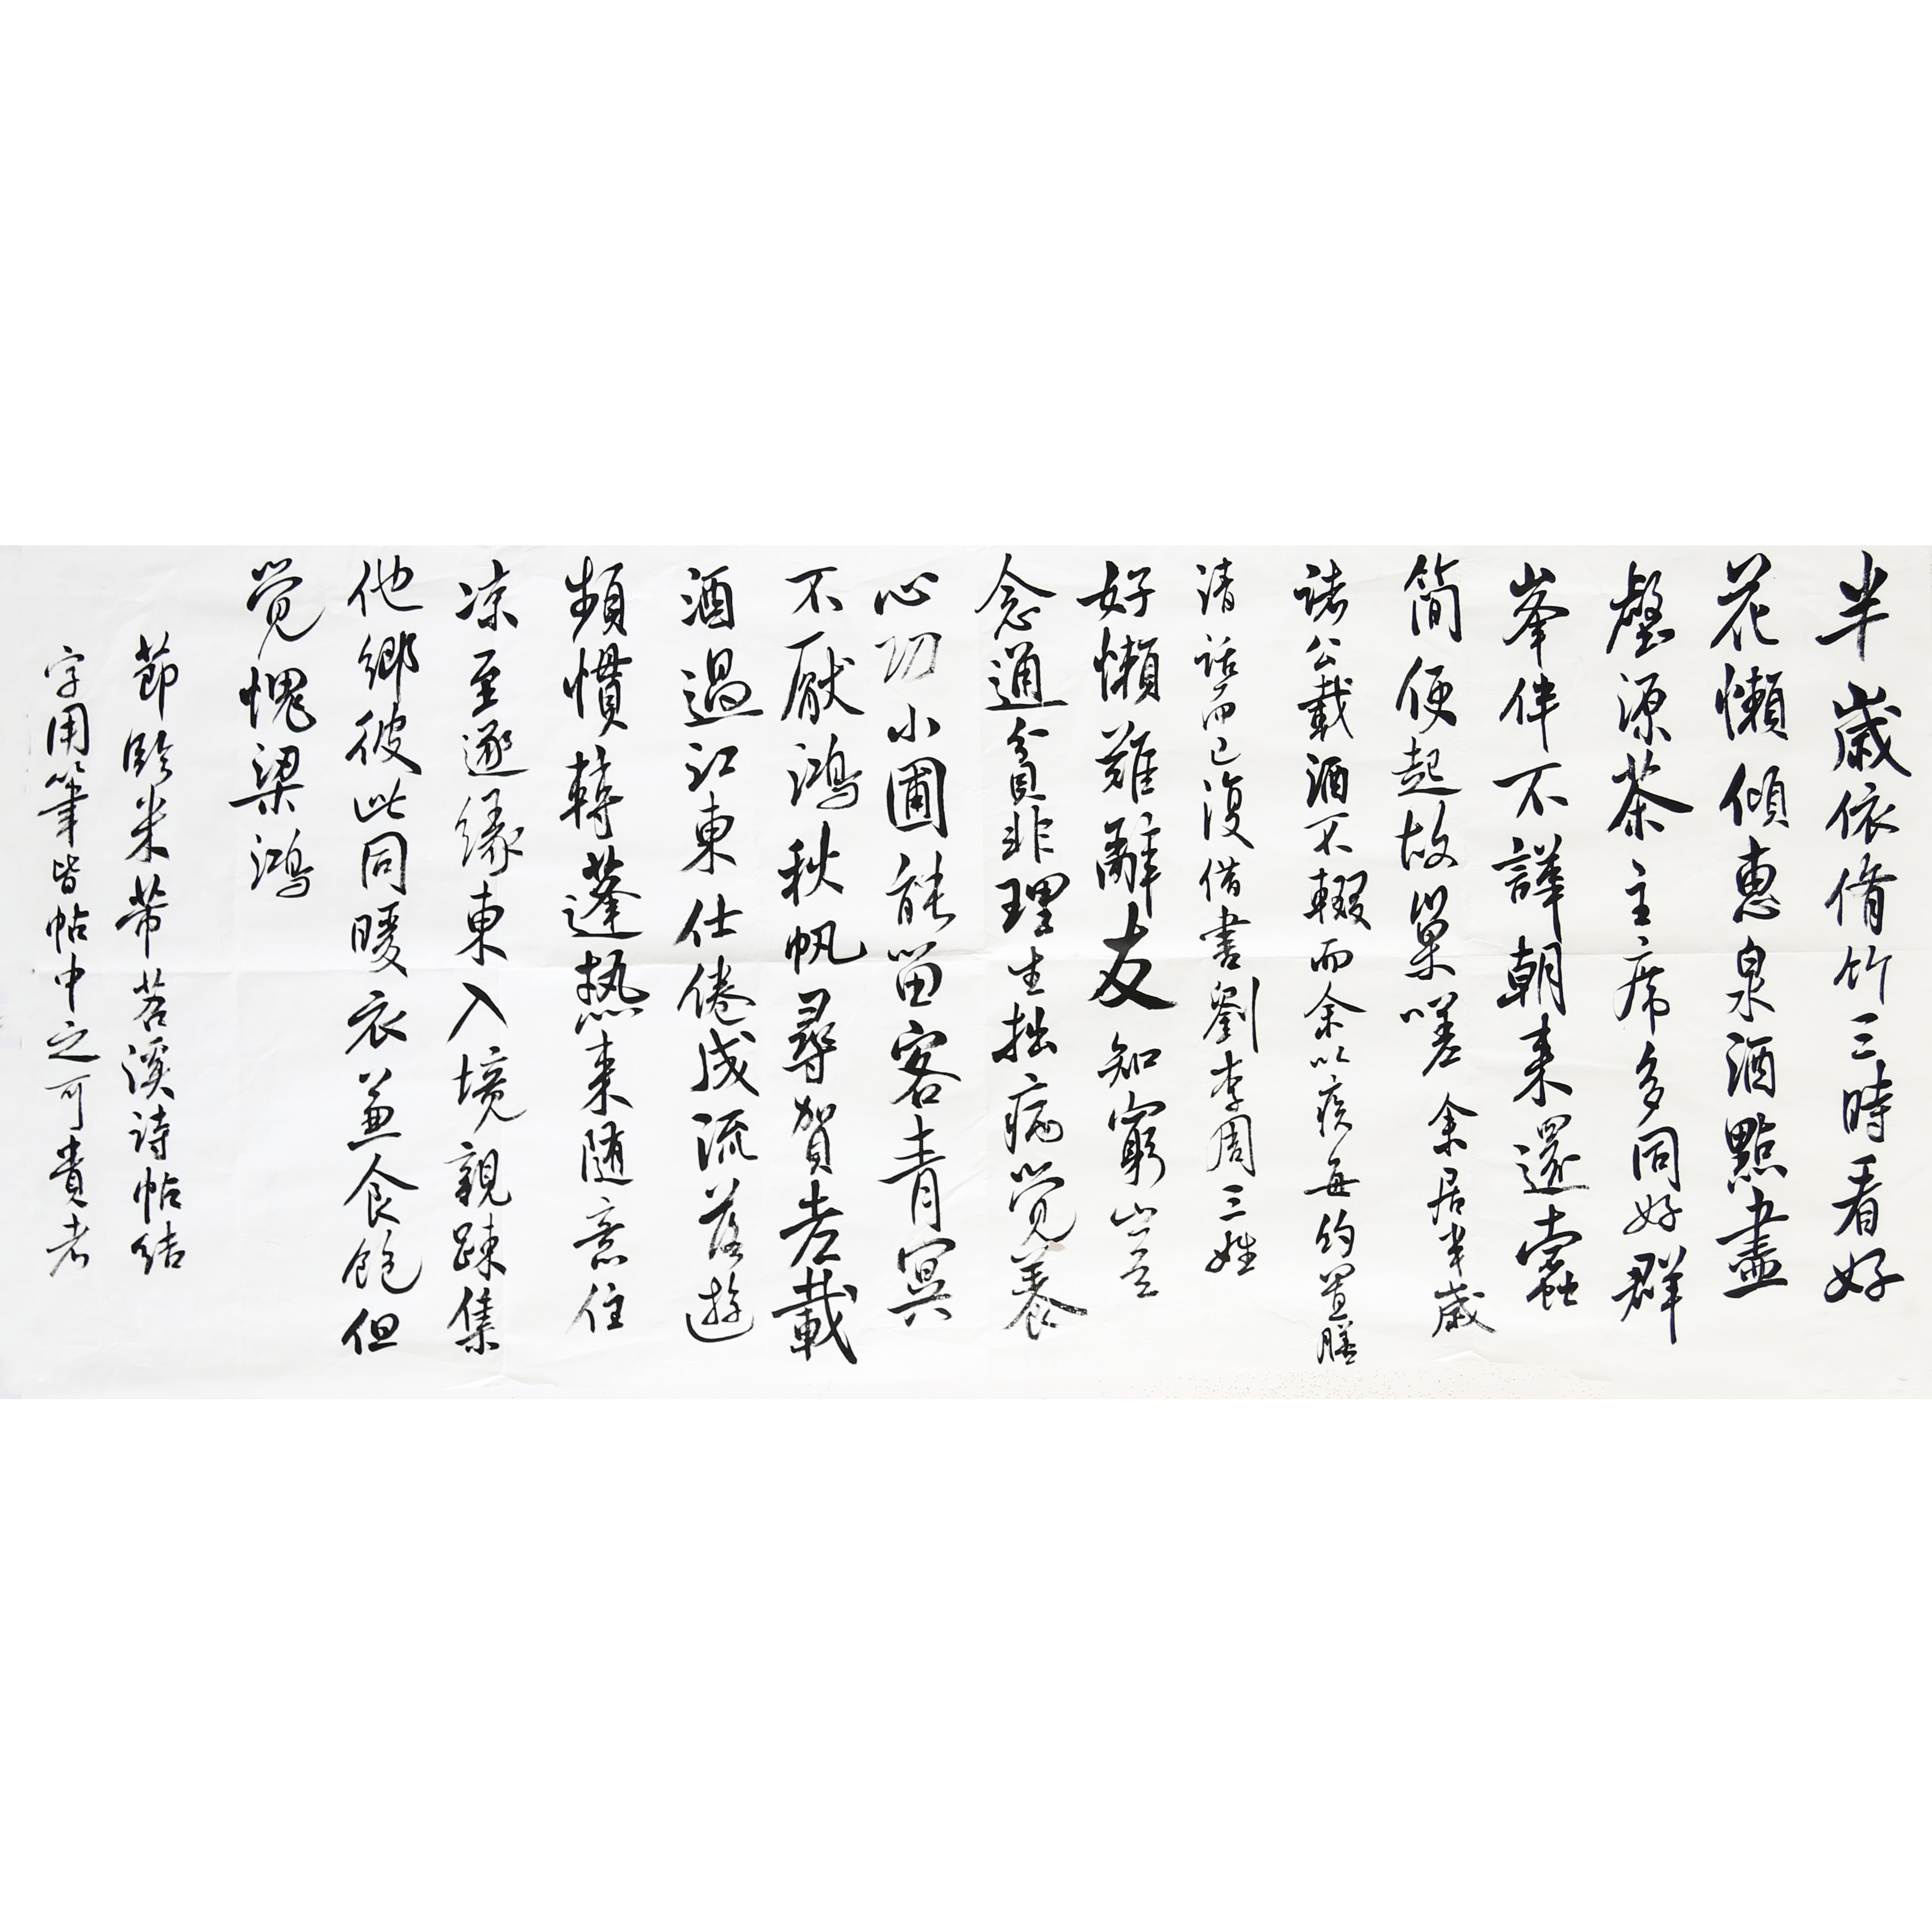 半歲依脩竹三時看好
花懶傾惠泉酒點盡
壑源茶主席多同好群
峯伴不譁朝来還蠹
簡便起故巢嗟余居半歲
諸公載酒不輟而余以疾每約置膳
清話而已復借書劉李周三姓
好懶難辭友知窮豈
念通貧非理生拙病覺養
心功小圃能留客青冥
不厭鴻秋帆尋賀老載
酒過江東仕倦成流落遊
頻慣轉蓬熱来随意住
凉至逐緣東入境親踈集
他鄉彼此同暖衣兼食飽但
覺愧梁鴻
節臨米芾苕溪詩帖結
字用筆皆帖中之可貴者